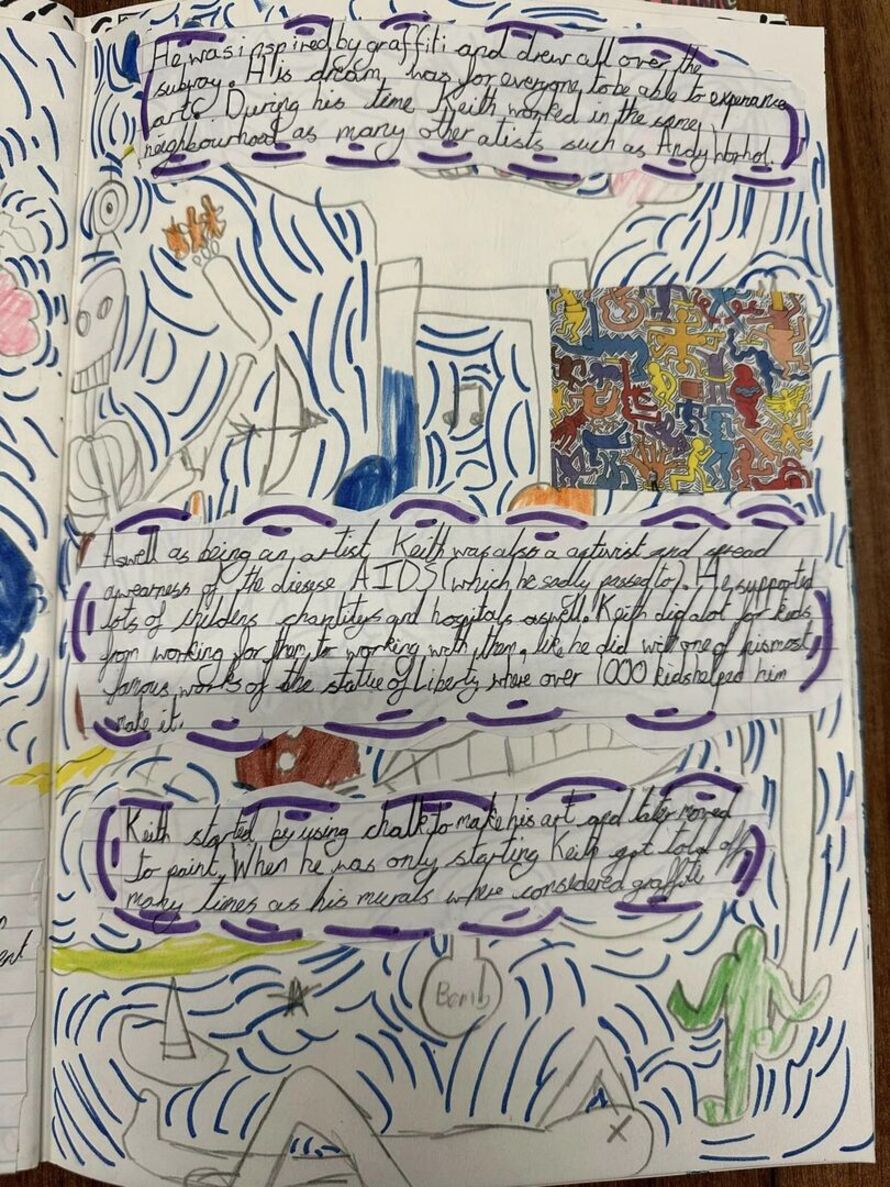 He was inspired by graffiti and drew all over the
subway. His dream was for everyone to be able to experiance
art. During his time Keith worked in the same
neighbourhood as many other atists such as Andy Warhol.
Aswell as being an artist Keith was also a activist and spread
awearness of the diesese AIDS (which he sadly passed to). He supported
lots of childens charititys and hospitals aswell! Keith did alot for kids
from working for them, to working with them, like he did with one of his most
famous works of the statue of Liberty where over 1000 kids helped him
make it.
Keith started by using chalk to make his art and later moved
to paint. When he was only starting Keith got told off
many times as his murals where considered graffiti
Bomb
ent